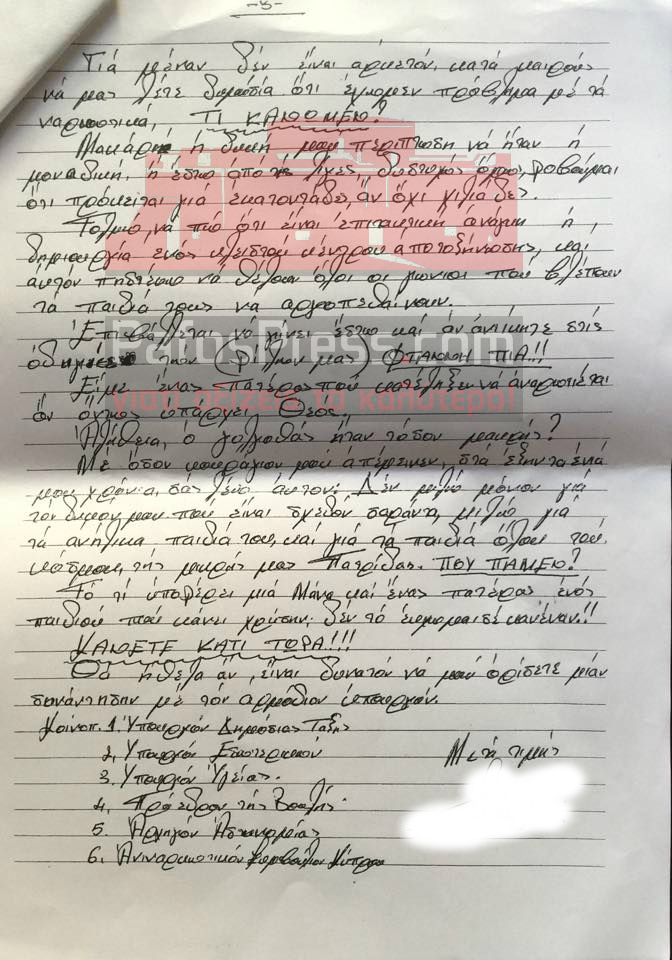 -5-
Γιά μέναν δέν είναι αρκετόν, κατά καιρούς
νά μας λέτε δημόσια ότι έχομεν πρόβλημα μέ τά
ναρκωτικά, ΤΙ ΚΑΝΟΜΕΝ?
Μακάρι ή δική μου περίπτωση νά ήταν ή
μοναδική, ή έστω από λίγες δυστυχώς όμως, φοβούμαι
ότι πρόκειται γιά εκατοντάδες, άν όχι χιλιάδες.
Τολμώ, νά πώ ότι είναι επιτακτική ανάγκη ή
δημιουργία ενός κλειστού κέντρου αποτοξήνωσης, και
αυτόν πιστεύω νά θέλουν όλοι οι γονιοί πού βλέπουν
τά παιδιά τους να αργοπεθαίνουν.
Επιβάλλεται νά γίνει έστω καί άν αντίκητε στίς
τών (φίλων μας) ΦΤΑΝΝΗ ΠΙΑ!!!
Είμε ένας πατέρας πού κατέληξεν νά αναρωτιέται
άν όντως υπάρχει Θεός.
Αλήθεια, ό γολγοθάς ήταν τόσον μακρής?
Μέ όσον κουράγιον μού απέμεινεν, στά εξήντα ένα
μου χρόνια, σάς λέω, αυτόν: Δέν μιλώ μόνον γιά
τόν δικόν μου πού είναι σχεδόν σαράντα, μιλώ γιά
τά ανήλικα παιδιά του, καί γιά τά παιδιά όλου τού
κόσμου, τής μικρής μας Πατρίδας. ΠΟΥ ΠΑΜΕΝ?
Τό τί υποφέρει μιά Μάνα καί ένας πατέρας ενός
παιδιού πού κάνει χρήσην: δέν τό εύχομαι σέ κανέναν!!
ΚΑΝΕΤΕ ΚΑΤΙ ΤΩΡΑ!!!
Θά ήθελα άν, είναι δυνατόν νά μού ορίσετε μίαν
συνάντησην μέ τόν αρμόδιον υπουργόν.
Κοινοπ. 1. Υπουργόν Δημόσιας Τάξης
2. Υπουργόν Εσωτερικών
Μετά τιμής
3. Υπουργόν Υγείας.
4. Πρόεδρον τής Βουλής.
5. Αρχηγόν Αστυνομείας
6. Αντιναρκωτικόν Συμβούλιον Κύπρου
PafosPress.com
Γιατί αξίζετε τα καλύτερα!